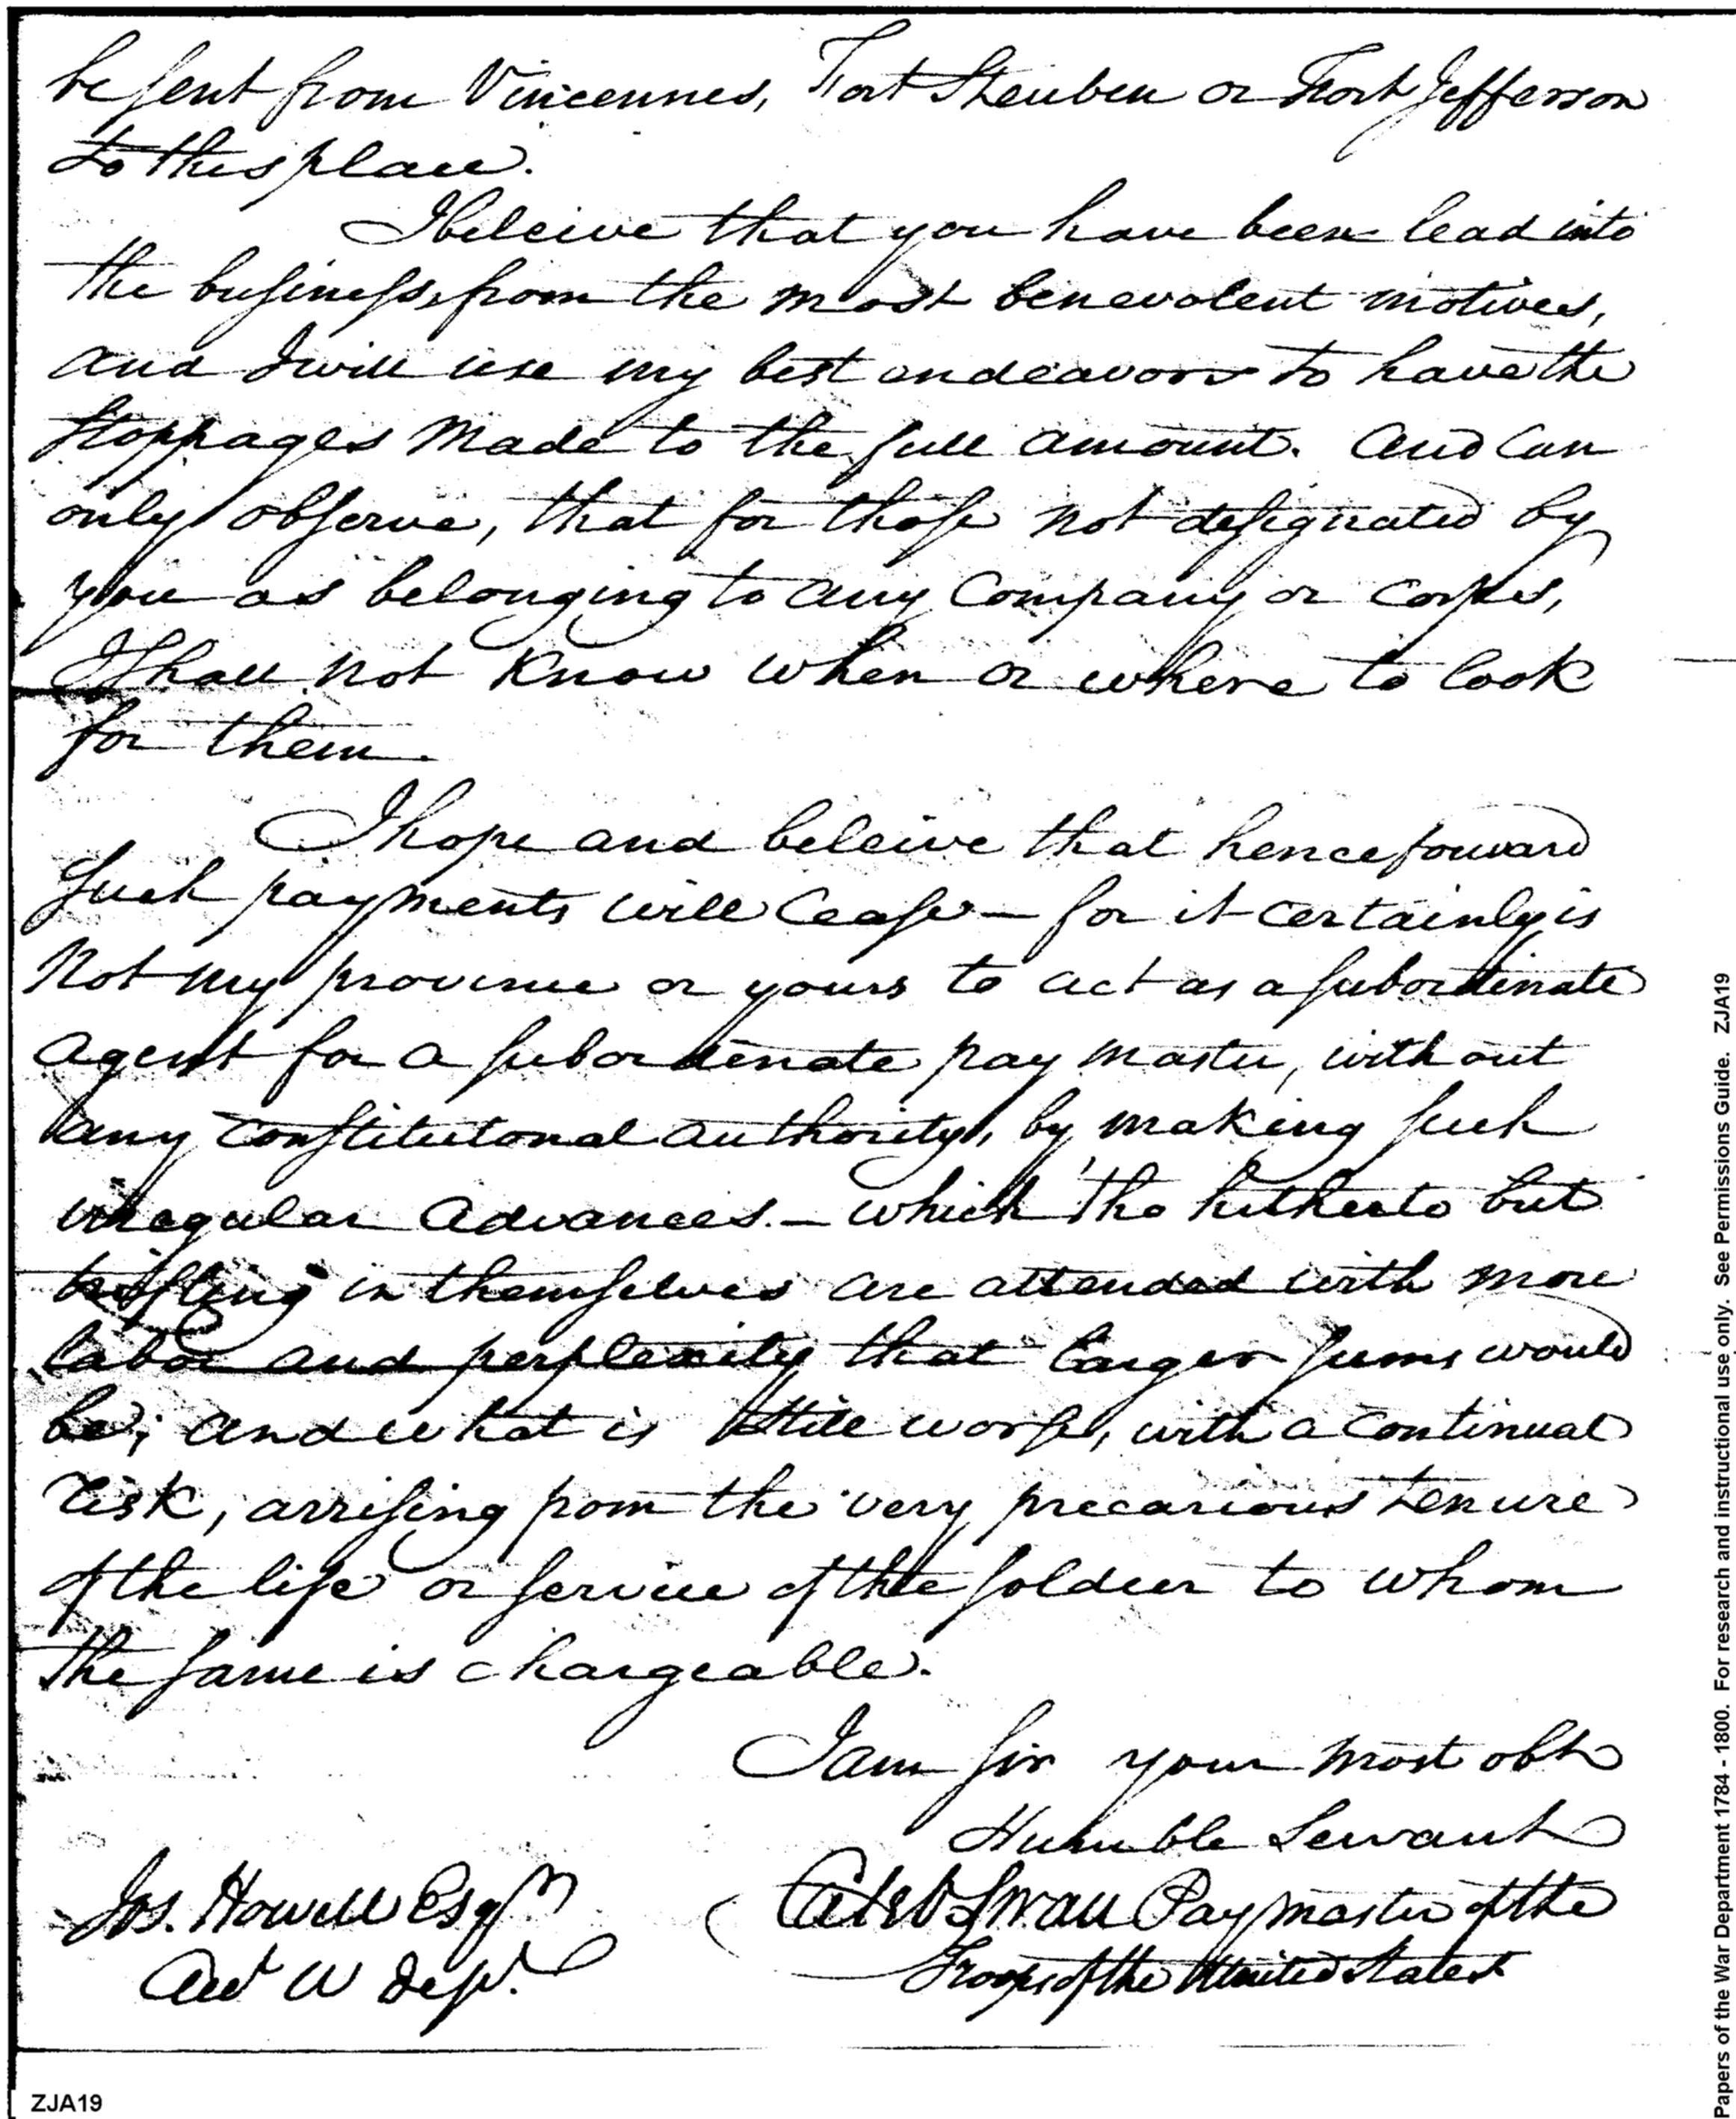 be sent from Vincennes, Fort Steuben or Fort Jefferson
to this place.
I beleive that you have been lead into
the business, from the most benevolent motives,
and I will use my best endeavors to have the
stoppages made to the full amount. and Can
only observe, that for those not designated by
you as belonging to any Company or corps,
I shall not know when or where to look
for them.
I hope and beleive that henceforward
such payments will Cease — for it certainly is
Not my province or yours to act as a subordinate
agent for a subordenate pay master, without
any constitutonal authority, by making such
irregular advances. — which 'tho hitherto but
trifling in themselves are attended with more
labor and perplexity that larger sums would
be; and what is still worse, with a continual
risk, arrising from the very precarious tenure
of the life or service of the soldier to whom
the same is chargeable.
I am sir your most obt
Humble Servant
Caleb Swan Paymaster of the
Troops of the United States
Jos. Howell Esqr
Act W Dept.
ZJA19
Papers of the War Department 1784 - 1800. For research and instructional use only. See Permissions Guide. ZJA19